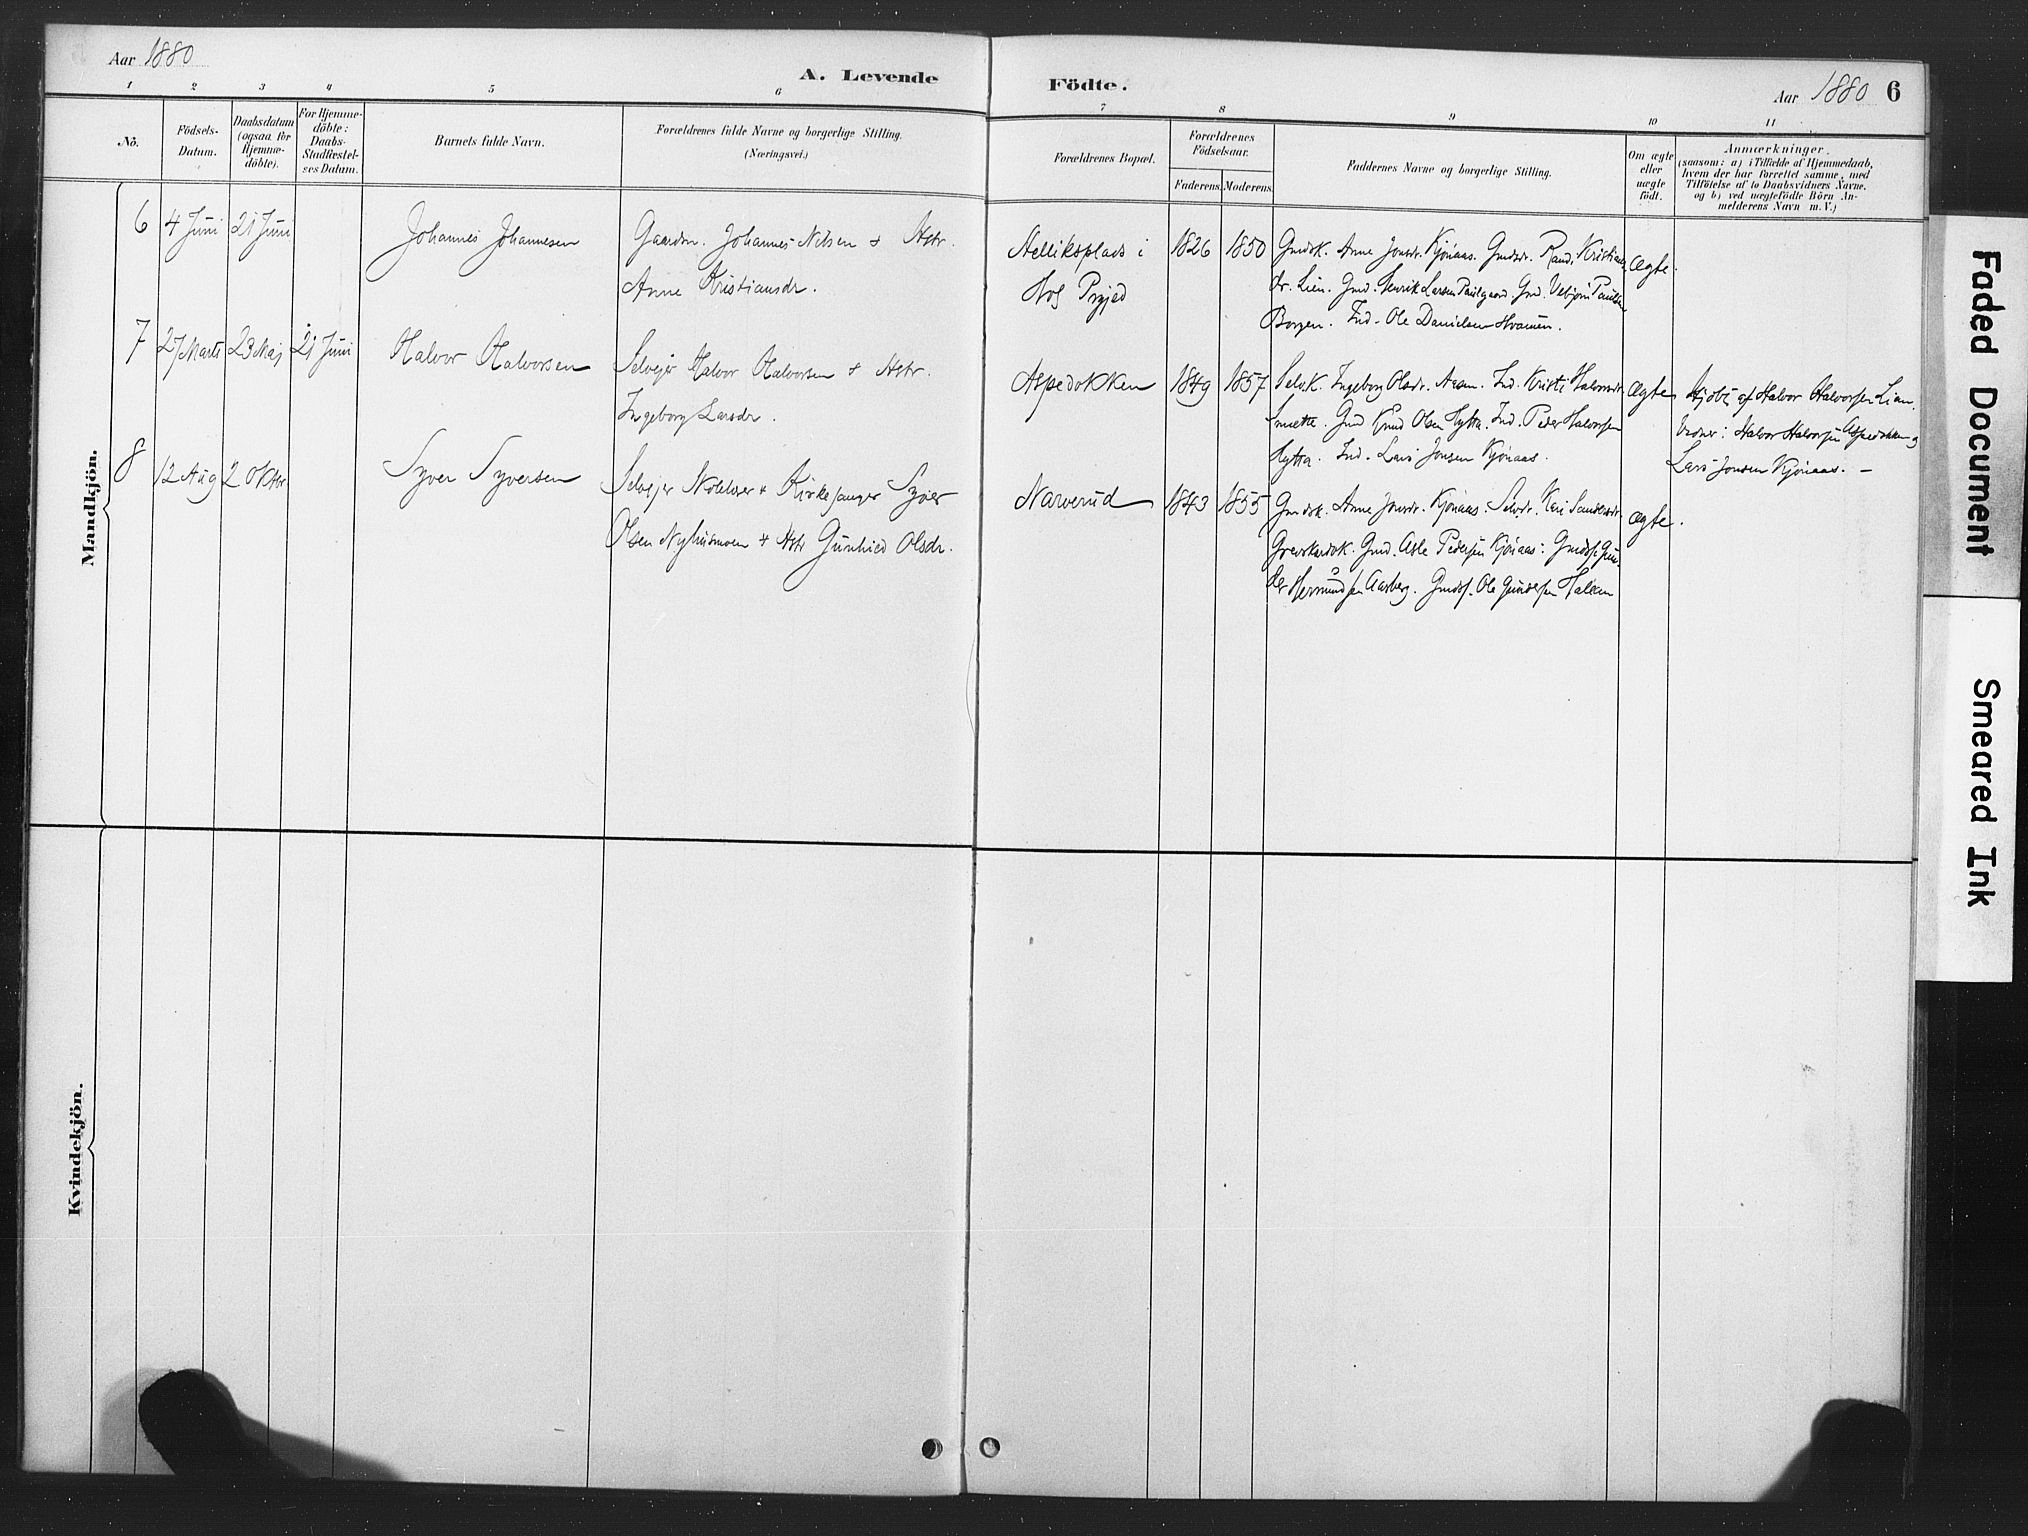 Aar 1880
A. Levende
Födte.
Aar 1880 6
1 2 3 4 5 6 7 8 9 10 11
No.
Födsels-
Datum.
Daabsdatum
(ogsaa for
Hjemme-
döbte).
For Hjemme-
döbte:
Daabs-
Stadfæstel-
ses Datum.
Barnets fulde Navn.
Forældrenes fulde Navne og borgerlige Stilling.
(Næringsvei.)
Forældrenes Bopæl.
Forældrenes
Födselsaar.
Faderens. Moderens.
Faddernes Navne og borgerlige Stilling.
Om ægte
eller
uægte
födt.
Anmærkninger.
(saasom: a) i Tilfælde af Hjemmedaab,
hvem der har forrettet samme, med
Tilföielse af to Daabsvidners Navne.
og b) ved uægtefödte Börn An-
melderens Navn m. V.)
Mandkjön.
6 4 Juni 21 Juni Johannes Johannesen
Gaardm. Johannes Nilsen + Hstr.
Anne Kristiansdr.
plads i
Hol Prgjed
1826 1850
Gmdsk. Anne Jonsdr. Kjönaas. Gmdsdr. Rand. Kristians
dr. Lien. Gmd. Henrik Larsen Paulgaard. Gmd. Vebjörn Paulsen
Borgen. Ind. Ole Danielsen
ægte.
7 27 Marts 23 Maj 21 Juni Halvor Halvorsen
Selvejer Halvor Halvorsen + Hstr.
Ingeborg Larsdr.
Aspedokken 1849 1857
Selv.K. Ingeborg Olsdr. Ind. Kristi Halvorsdr
Gmd Knud Olsen Hytta. Ind. Peder Halvorsen
Hytta. Ind. Lars Jonsen Kjönaas.
ægte
Hjdbt af Halvor Halvorsen Lien.
Vidner: Halvor Halvorsen Aspedokken og
Lars Jonsen Kjönaas. –
8 12 Aug 2 Oktbr Syver Syversen
Selvejer Skolelærer + Kirkesanger Syver
Olsen Nyhusmoen + Hstr Gunhild Olsdr.
Narverud 1843 1855
Gmdsk. Anne Jonsdr. Kjönaas. Selvdr. Kari Sandersdr.
Grevskardok. Gmd. Asle Pedersen Kjönaas: Gmdss. Gun-
der Hermundsen Aasberg. Gmdss. Ole Gundersen
ægte.
Kvindekjön.
Faded Document
Smeared Ink